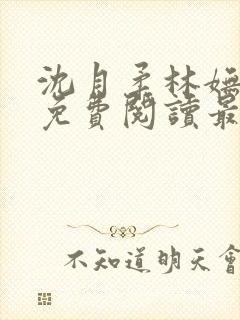 沈月柔林嫵
免費閱讀最
不知道明天會